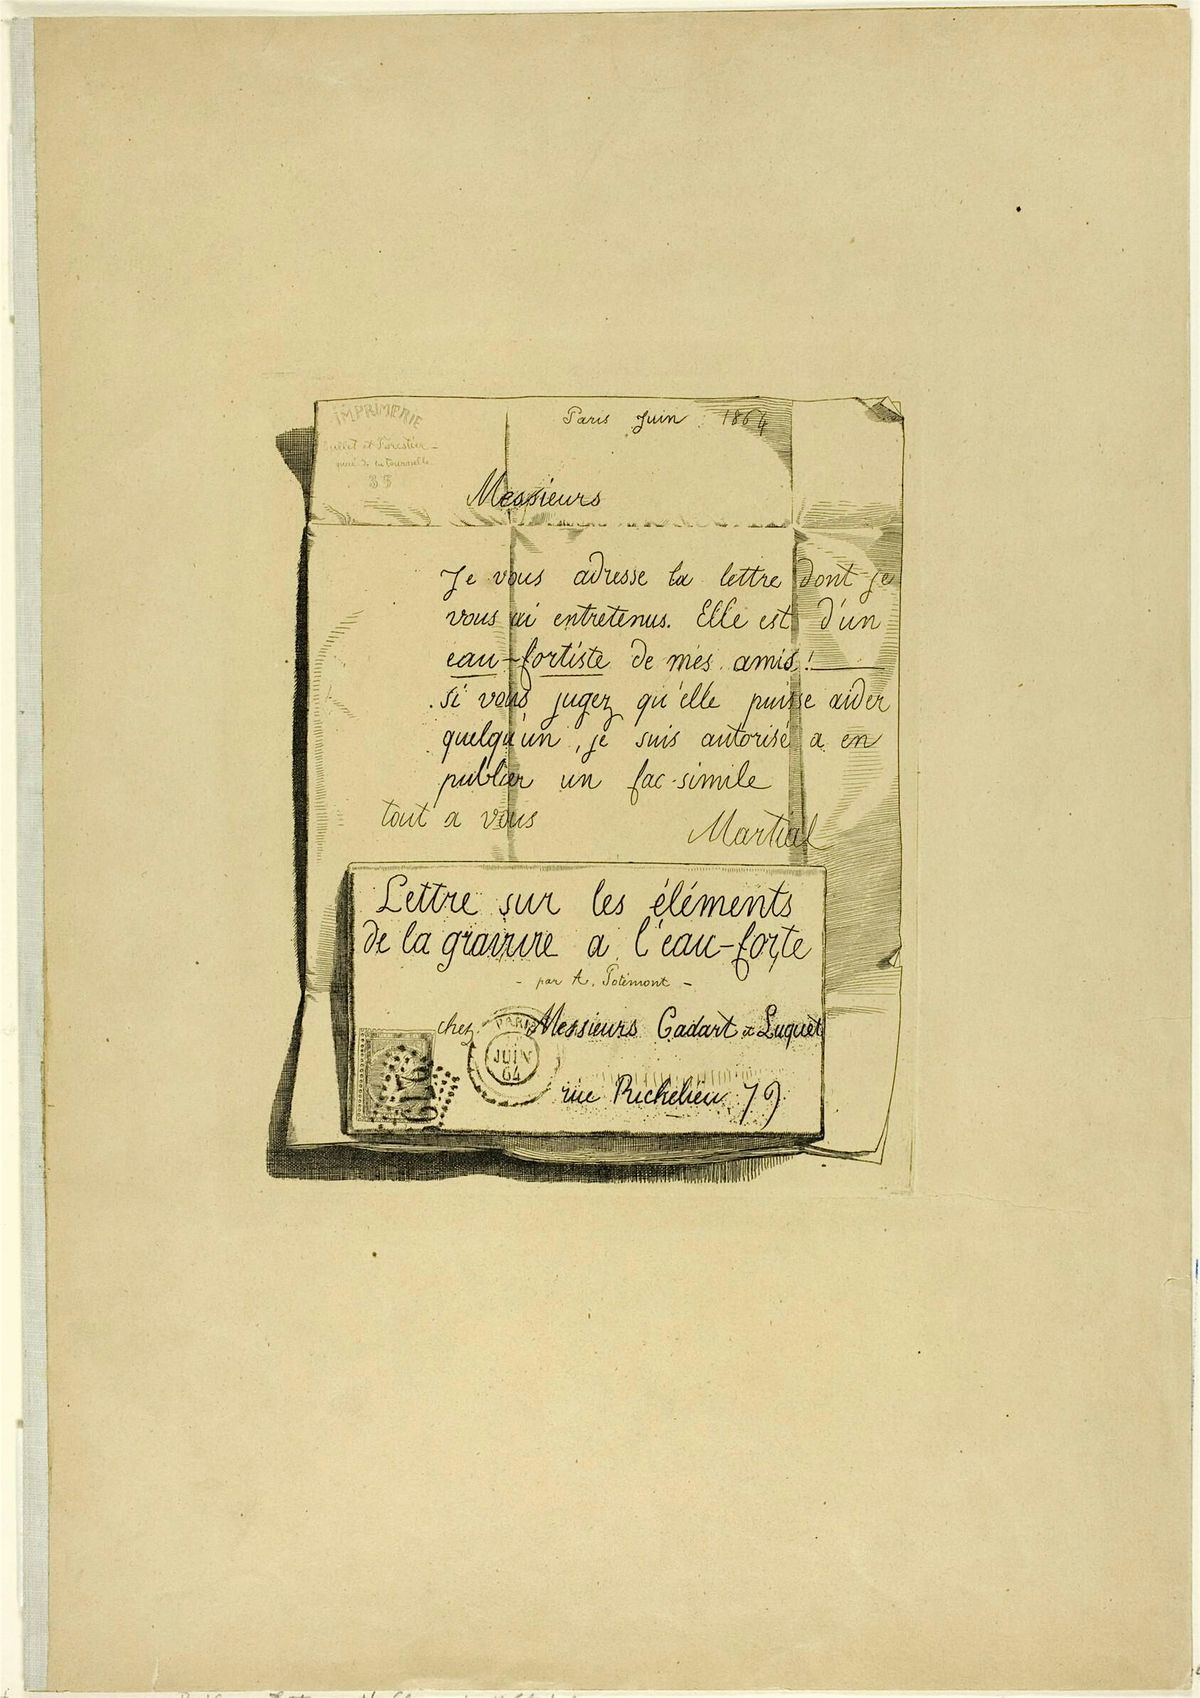 IMPRIMERIE
quai de la tournelle
35
Paris Juin 1864
Messieurs
Je vous adresse la lettre dont je
vous ai entretenus. Elle est d'un
eau-fortiste de mes amis!
si vous jugez qu'elle puisse aider
quelqu'un, je suis autorisé a en
publier un fac-simile
tout a vous
Martial
Lettre sur les éléments
de la gravure a l'eau-forte
- par A. Potémont -
chez Messieurs Cadart & Luquet
PARIS
JUIN
64
rue Richelieu 79